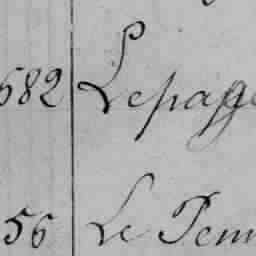 582 Lepage
56 Le Penn